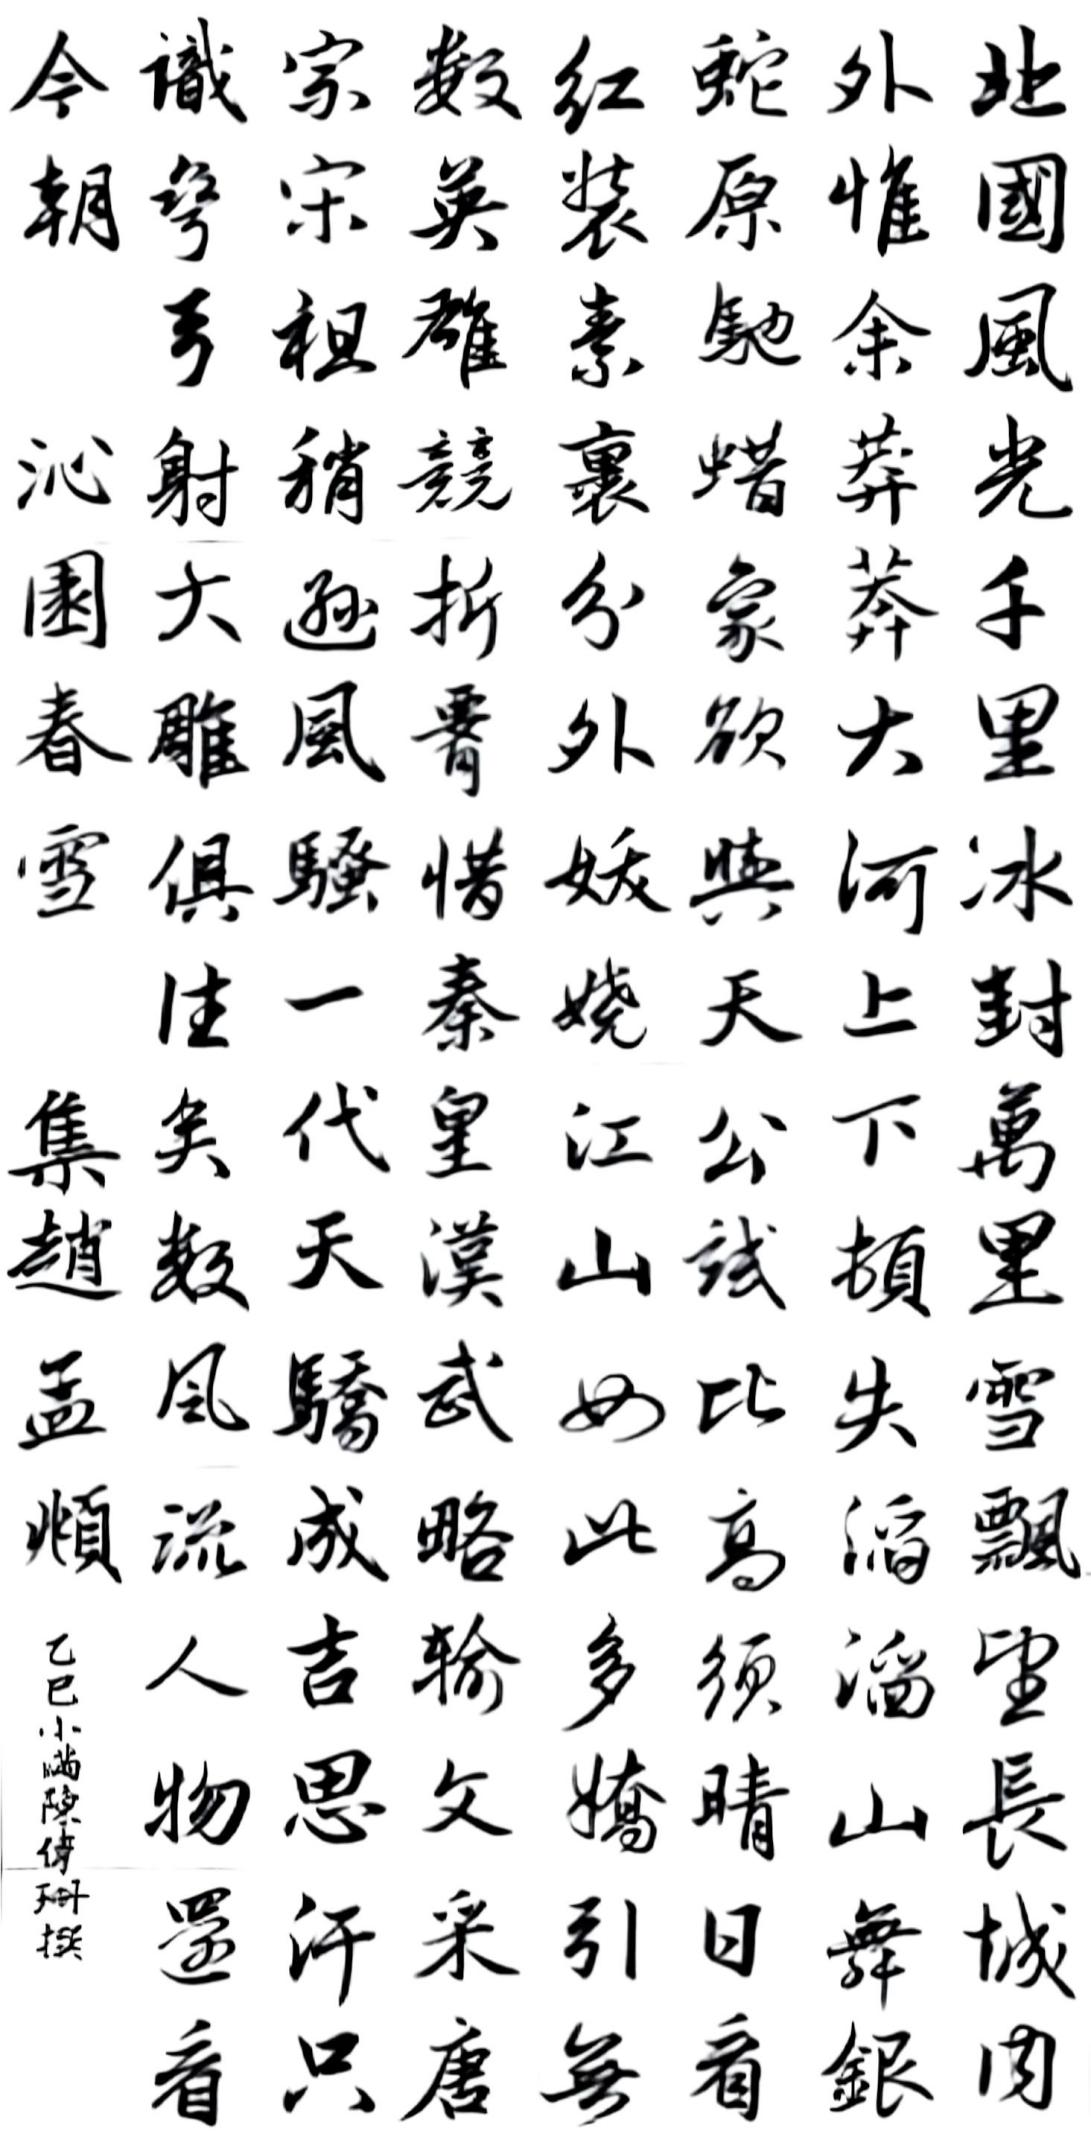 北國風光千里冰封萬里雪飄望長城内
外惟余莽莽大河上下頓失滔滔山舞銀
蛇原馳蜡象欲與天公試比高須晴日看
红装素裹分外妖娆江山如此多嬌引無
数英雄競折腰惜秦皇漢武略输文采唐
宗宋祖稍遜風騷一代天驕成吉思汗只
識彎弓射大雕俱往矣数风流人物還看
今朝 沁園春雪 集趙孟頫
乙巳小滿陳偉珊撰